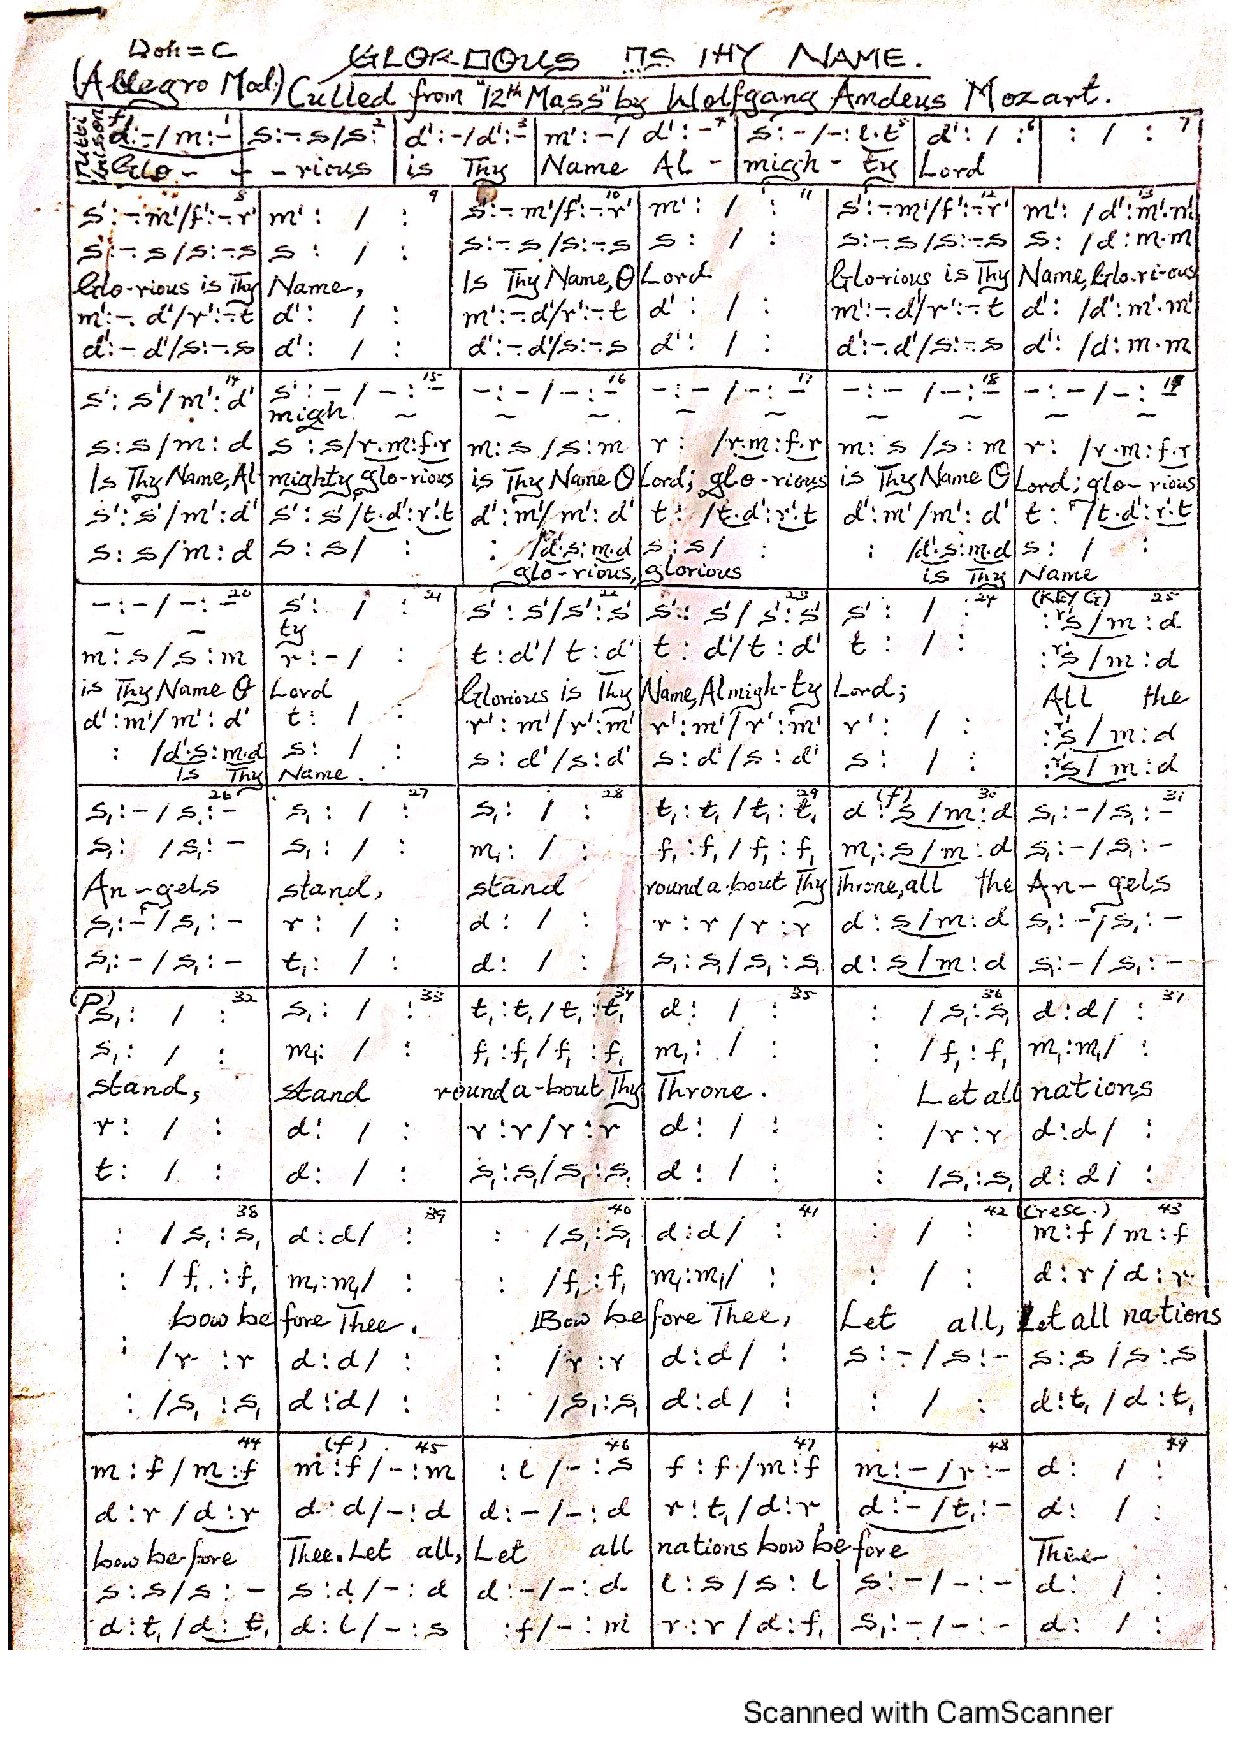 Doh = C GLORIOUS IS THY NAME.
(Allegro Mod.) Culled from "12th Mass" by Wolfgang Amdeus Mozart.
Tutti Unison f
d:-/m:- 1 s:-.s/s: 2 d':-/d':- 3 m':-/d':- 4 s:-/-:l.t 5 d': / : 6 : / : 7
Glo - - - rious is Thy Name Al - migh - ty Lord
s':-.m'/f':-.r' 8 m': / : 9 s':-.m'/f':-.r' 10 m': / : 11 s':-.m'/f':-.r' 12 m': /d':m'.m' 13
s':-.s/s:-.s s: / : s:-.s/s:-.s s: / : s:-.s/s:-.s s: /d:m.m
Glo-rious is Thy Name, Is Thy Name, O Lord Glo-rious is Thy Name, Glo-ri-ous
m':-.d'/r':-.t d': / : m':-.d/r':-.t d': / : m':-.d/r':-.t d': /d':m'.m'
d':-.d'/s:-.s d': / : d':-.d/s:-.s d': / : d':-.d'/s:-.s d': /d:m.m
s':s'/m':d' 14 s':-/-:- 15 -:-/-:- 16 -:-/-:- 17 -:-/-:- 18 -:-/-:- 19
migh ~ ~ ~ ~ ~ ~ ~ ~ ~
s:s/m:d s:s/r.m:f.r m:s/s:m r: /r.m:f.r m:s/s:m r: /r.m:f.r
Is Thy Name, Al- mighty glo-rious is Thy Name O Lord; glo-rious is Thy Name O Lord; glo-rious
s':s'/m':d' s':s'/t.d':r'.t d':m'/m':d' t: /t.d':r'.t d':m'/m':d' t: /t.d':r'.t
s:s/m:d s:s/ : : /d'.s:m.d s:s/ : : /d'.s:m.d s: / :
glo-rious, glorious is Thy Name
-:-/-:- 20 s': / : 21 s':s'/s':s' 22 s':s'/s':s' 23 s': / : 24 (KEY G) :r's/m:d 25
~ ~ ty
m:s/s:m r:-/ : t:d'/t:d' t:d'/t:d' t: / : :r's/m:d
is Thy Name O Lord Glorious is Thy Name, Almigh-ty Lord; All the
d':m'/m':d' t: / : r':m'/r':m' r':m'/r':m' r': / : :r's/m:d
: /d'.s:m.d s: / : s:d'/s:d' s:d'/s:d' s: / : :r's/m:d
is Thy Name.
s₁:-/s₁:- 26 s₁: / : 27 s₁: / : 28 t₁:t₁/t₁:t₁ 29 d:(f)s/m:d 30 s₁:-/s₁:- 31
s₁: /s₁:- s₁: / : m₁: / : f₁:f₁/f₁:f₁ m₁:s/m:d s₁:-/s₁:-
An-gels stand, stand round a-bout Thy Throne, all the An-gels
s₁:-/s₁:- r: / : d: / : r:r/r:r d:s/m:d s₁:-/s₁:-
s₁:-/s₁:- t₁: / : d: / : s₁:s₁/s₁:s₁ d:s/m:d s₁:-/s₁:-
(P) s₁: / : 32 s₁: / : 33 t₁:t₁/t₁:t₁ 34 d: / : 35 : /s₁:s₁ 36 d:d/ : 37
s₁: / : m₁: / : f₁:f₁/f₁:f₁ m₁: / : : /f₁:f₁ m₁:m₁/ :
stand, stand round a-bout Thy Throne. Let all nations
r: / : d: / : r:r/r:r d: / : : /r:r d:d/ :
t: / : d: / : s₁:s₁/s₁:s₁ d: / : : /s₁:s₁ d:d/ :
: /s₁:s₁ 38 d:d/ : 39 : /s₁:s₁ 40 d:d/ : 41 : / : 42 (Cresc.) m:f/m:f 43
: /f₁:f₁ m₁:m₁/ : : /f₁:f₁ m₁:m₁/ : : / : d:r/d:r
bow be fore Thee. Bow be fore Thee, Let all, Let all nations
: /r:r d:d/ : : /r:r d:d/ : s:-/s:- s:s/s:s
: /s₁:s₁ d:d/ : : /s₁:s₁ d:d/ : : / : d:t₁/d:t₁
m:f/m:f 44 (f) m:f/-:m 45 :l/-:s 46 f:f/m:f 47 m:-/r:- 48 d: / : 49
d:r/d:r d:d/-:d d:-/-:d r:t₁/d:r d:-/t₁:- d: / :
bow be-fore Thee. Let all, Let all nations bow be fore Thee
s:s/s:- s:d/-:d d:-/-:d l:s/s:l s:-/-:- d: / :
d:t₁/d:t₁ d:l/-:s :f/-:m r:r/d:f₁ s₁:-/-:- d: / :
Scanned with CamScanner